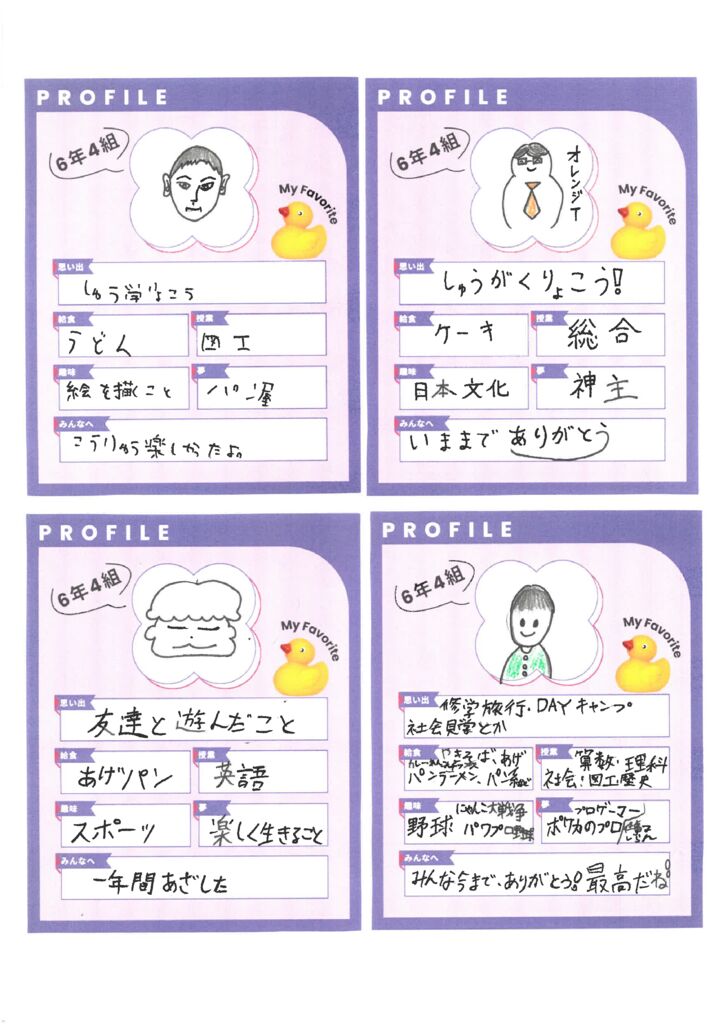 PROFILE
6年4組
オレンジT
My Favorite
思い出
しゅう学りょこう
給食
うどん
授業
図工
趣味
絵を描くこと
夢
パン屋
みんなへ
楽しかったよ。
PROFILE
6年4組
My Favorite
思い出
しゅうがくりょこう!
給食
ケーキ
授業
総合
趣味
日本文化
夢
神主
みんなへ
いままでありがとう
PROFILE
6年4組
My Favorite
思い出
友達と遊んだこと
給食
あげパン
授業
英語
趣味
スポーツ
夢
楽しく生きること
みんなへ
一年間あざした
PROFILE
6年4組
My Favorite
思い出
修学旅行・DAYキャンプ
社会見学とか
給食
やきそば、あげ
パンラーメン、パン
授業
算数・理科
社会!図工歴史
趣味
にゃんこ大戦争
野球 パワプロ野球
夢
プロゲーマー
ポケカのプロ
みんなへ
みんな今まで、ありがとう!最高だね!